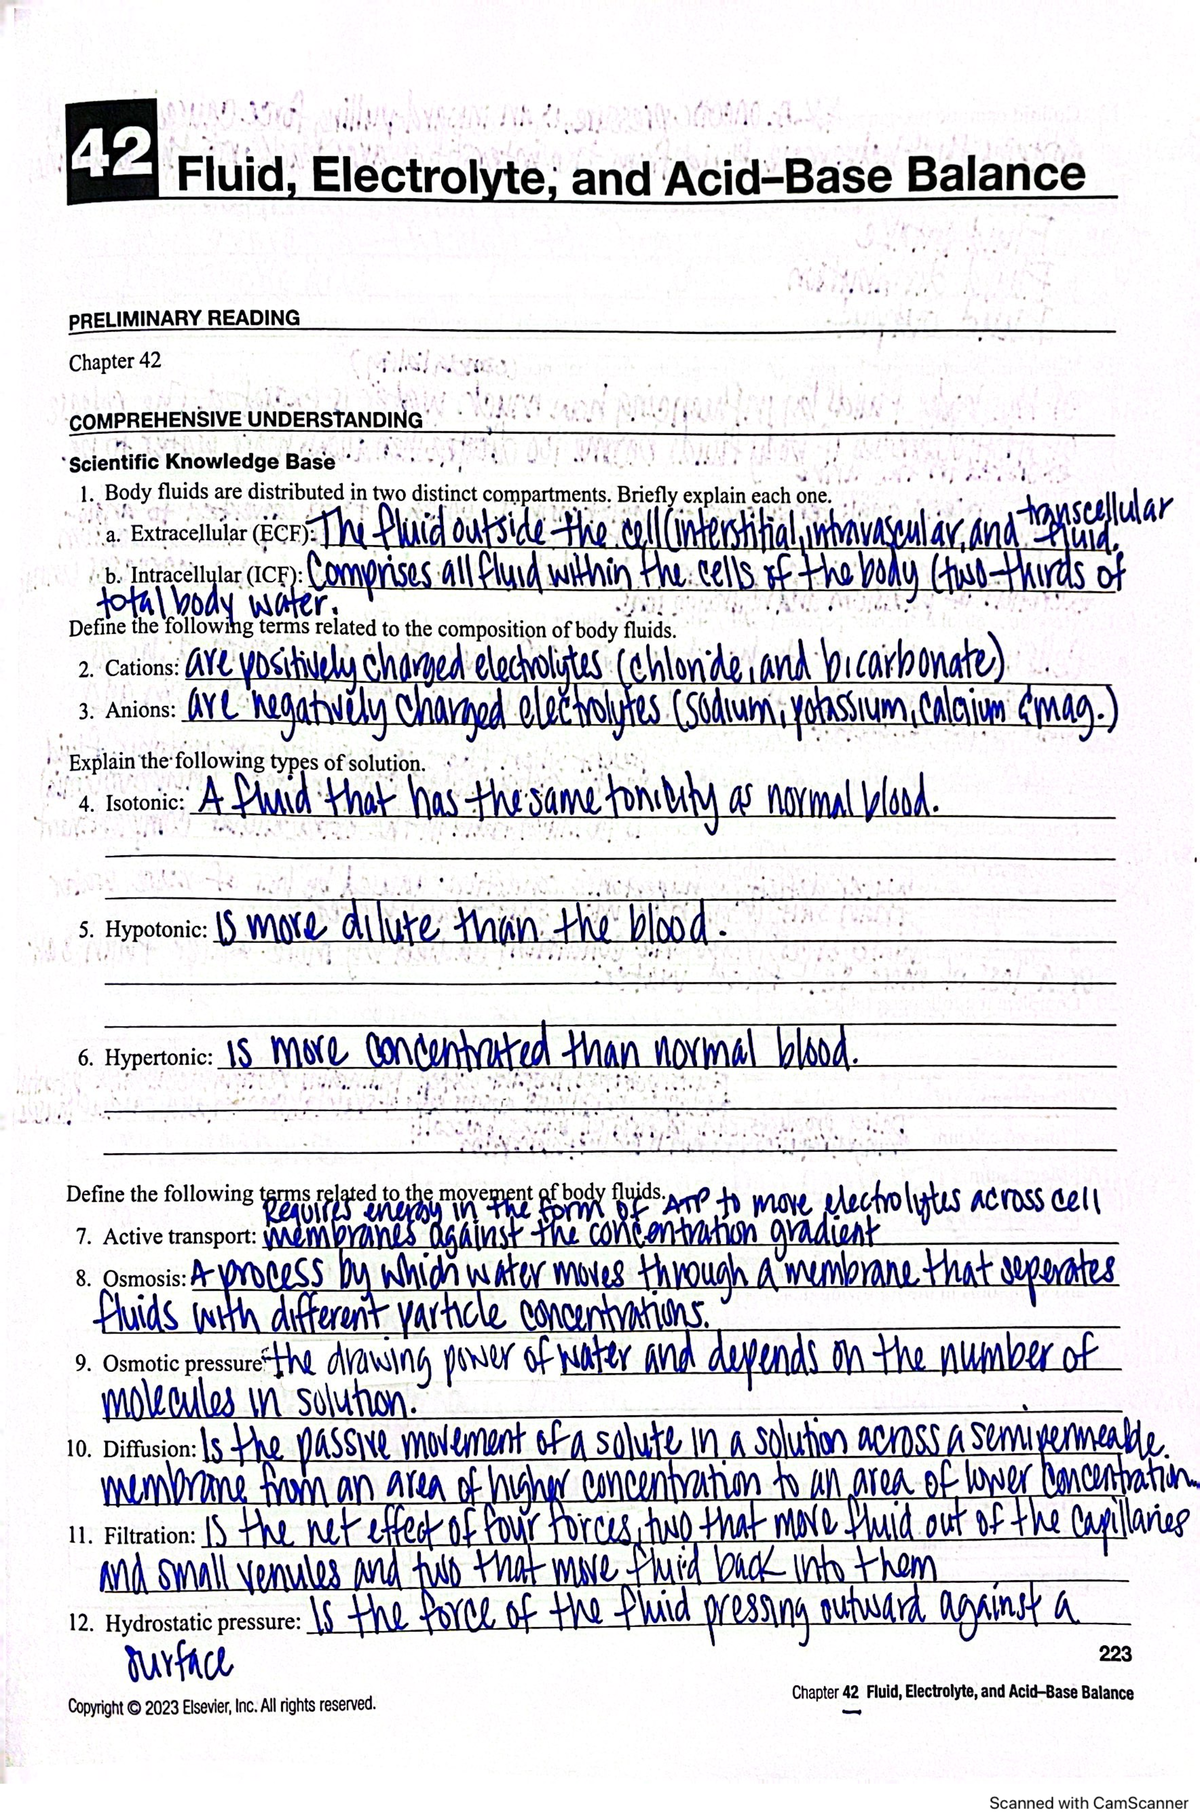 42 Fluid, Electrolyte, and Acid–Base Balance
PRELIMINARY READING
Chapter 42
COMPREHENSIVE UNDERSTANDING
Scientific Knowledge Base
1. Body fluids are distributed in two distinct compartments. Briefly explain each one.
a. Extracellular (ECF): The fluid outside the cell (interstitial, intravascular, and transcellular fluid.
b. Intracellular (ICF): Comprises all fluid within the cells of the body (two-thirds of
total body water.
Define the following terms related to the composition of body fluids.
2. Cations: are positively charged electrolytes (chloride, and bicarbonate)
3. Anions: are negatively charged electrolytes (sodium, potassium, calcium & mag.)
Explain the following types of solution.
4. Isotonic: A fluid that has the same tonicity as normal blood.
5. Hypotonic: is more dilute than the blood.
6. Hypertonic: is more concentrated than normal blood.
Define the following terms related to the movement of body fluids.
Requires energy in the form of ATP to move electrolytes across cell
7. Active transport: membranes against the concentration gradient
8. Osmosis: A process by which water moves through a membrane that seperates
fluids with different particle concentrations.
9. Osmotic pressure: the drawing power of water and depends on the number of
molecules in solution.
10. Diffusion: Is the passive movement of a solute in a solution across a semipermeable
membrane from an area of higher concentration to an area of lower concentration
11. Filtration: is the net effect of four forces, two that move fluid out of the capillaries
and small venules and two that move fluid back into them
12. Hydrostatic pressure: is the force of the fluid pressing outward against a
surface
223
Copyright © 2023 Elsevier, Inc. All rights reserved.
Chapter 42 Fluid, Electrolyte, and Acid–Base Balance
Scanned with CamScanner